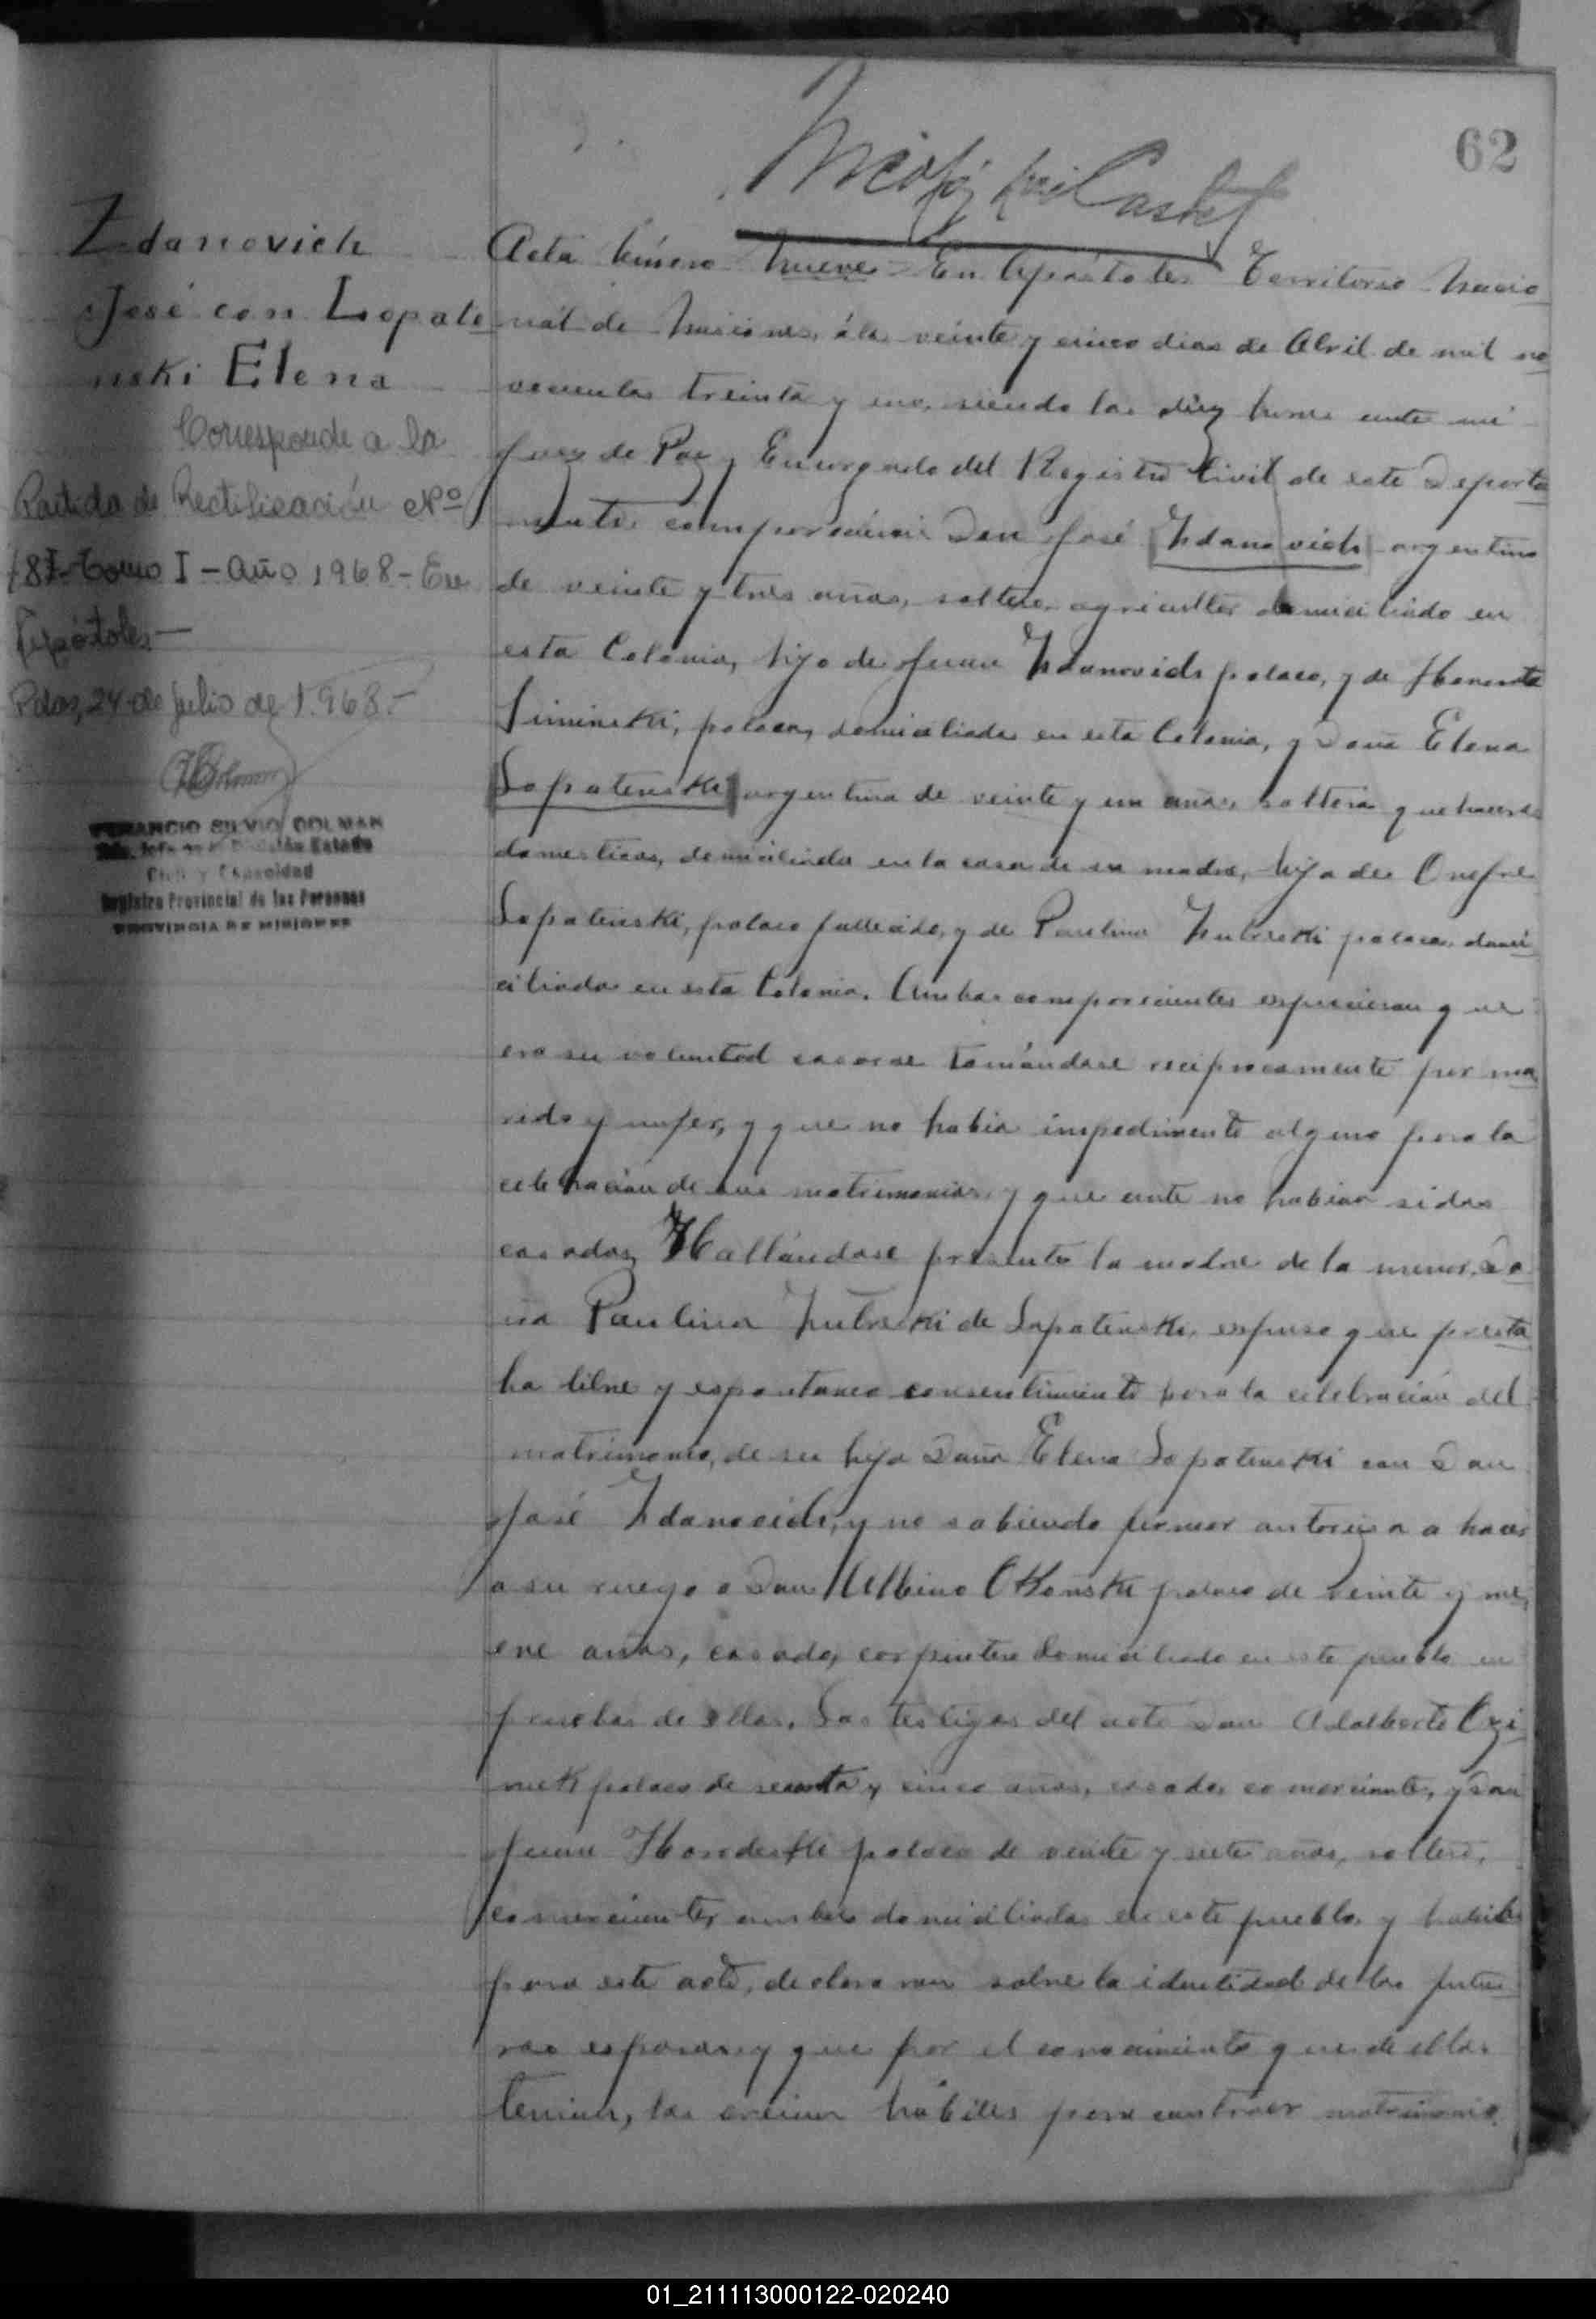 62
Zdanovich
José con Lopate
nski Elena
Corresponde a la
Partida de Rectificación Nº
Tomo I - Año 1968 - En
Apóstoles -
Pdas, 24 de Julio de 1.968.-
SILVIO COLMAN
Registro Provincial de las Personas
PROVINCIA DE MISIONES
Acta número nueve En Apóstoles Territorio Nacio
nal de Misiones, á los veinte y cinco dias de Abril de mil no
vecientos treinta y uno, siendo las diez horas ante mi
Juez de Paz y Encargado del Registro Civil de este Departa
mento comparecieron Don José Zdanovich argentino
de veinte y tres años, soltero, agricultor domiciliado en
esta Colonia, hijo de Juan Zdanovich polaco, y de
Siminski, polaca, domiciliados en esta Colonia, y Doña Elena
Lopatenski argentina de veinte y un años, soltera quehaceres
domesticos, domiciliada en la casa de su madre, hija de Onofre
Lopatenski, polaco fallecido, y de Paulina polaca, domi
ciliada en esta Colonia. Ambos comparecientes expusieron que
era su voluntad casarse tomándose reciprocamente por ma
rido y mujer, y que no habia impedimento alguno para la
celebración de sus matrimonios, y que ante no habian sidos
casados, Hallándose presente la madre de la menor, Do
ña Paulina de Lopatenski, expuso que presta
ba libre y espontaneo consentimiento para la celebración del
matrimonio, de su hija Doña Elena Lopatenski con Don
José Zdanovich, y no sabiendo firmar autoriza a hacer
a su ruego a Don Albino Okonski polaco de veinte y nu
eve años, casado, carpintero domiciliado en este pueblo en
pruebas de ellos. Los testigos del acto Don Adalberto Czi
mek polaco de y cinco años, casado, comerciante, y Don
Juan polaco de veinte y siete años, soltero,
comerciante, ambos domiciliados en este pueblo, y habiles
para este acto, declararon sobre la identidad de los futu
ros esposos y que por el conocimiento que de ellos
tenian, los creian hábiles para contraer matrimonio.
01_211113000122-020240